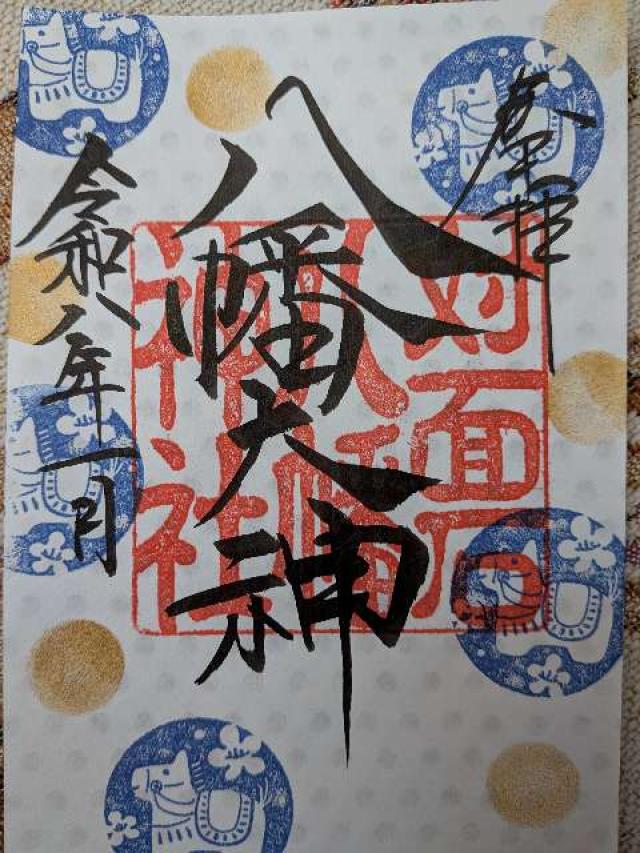 奉拝
八幡大神
令和八年一月
対面石
八幡
神社